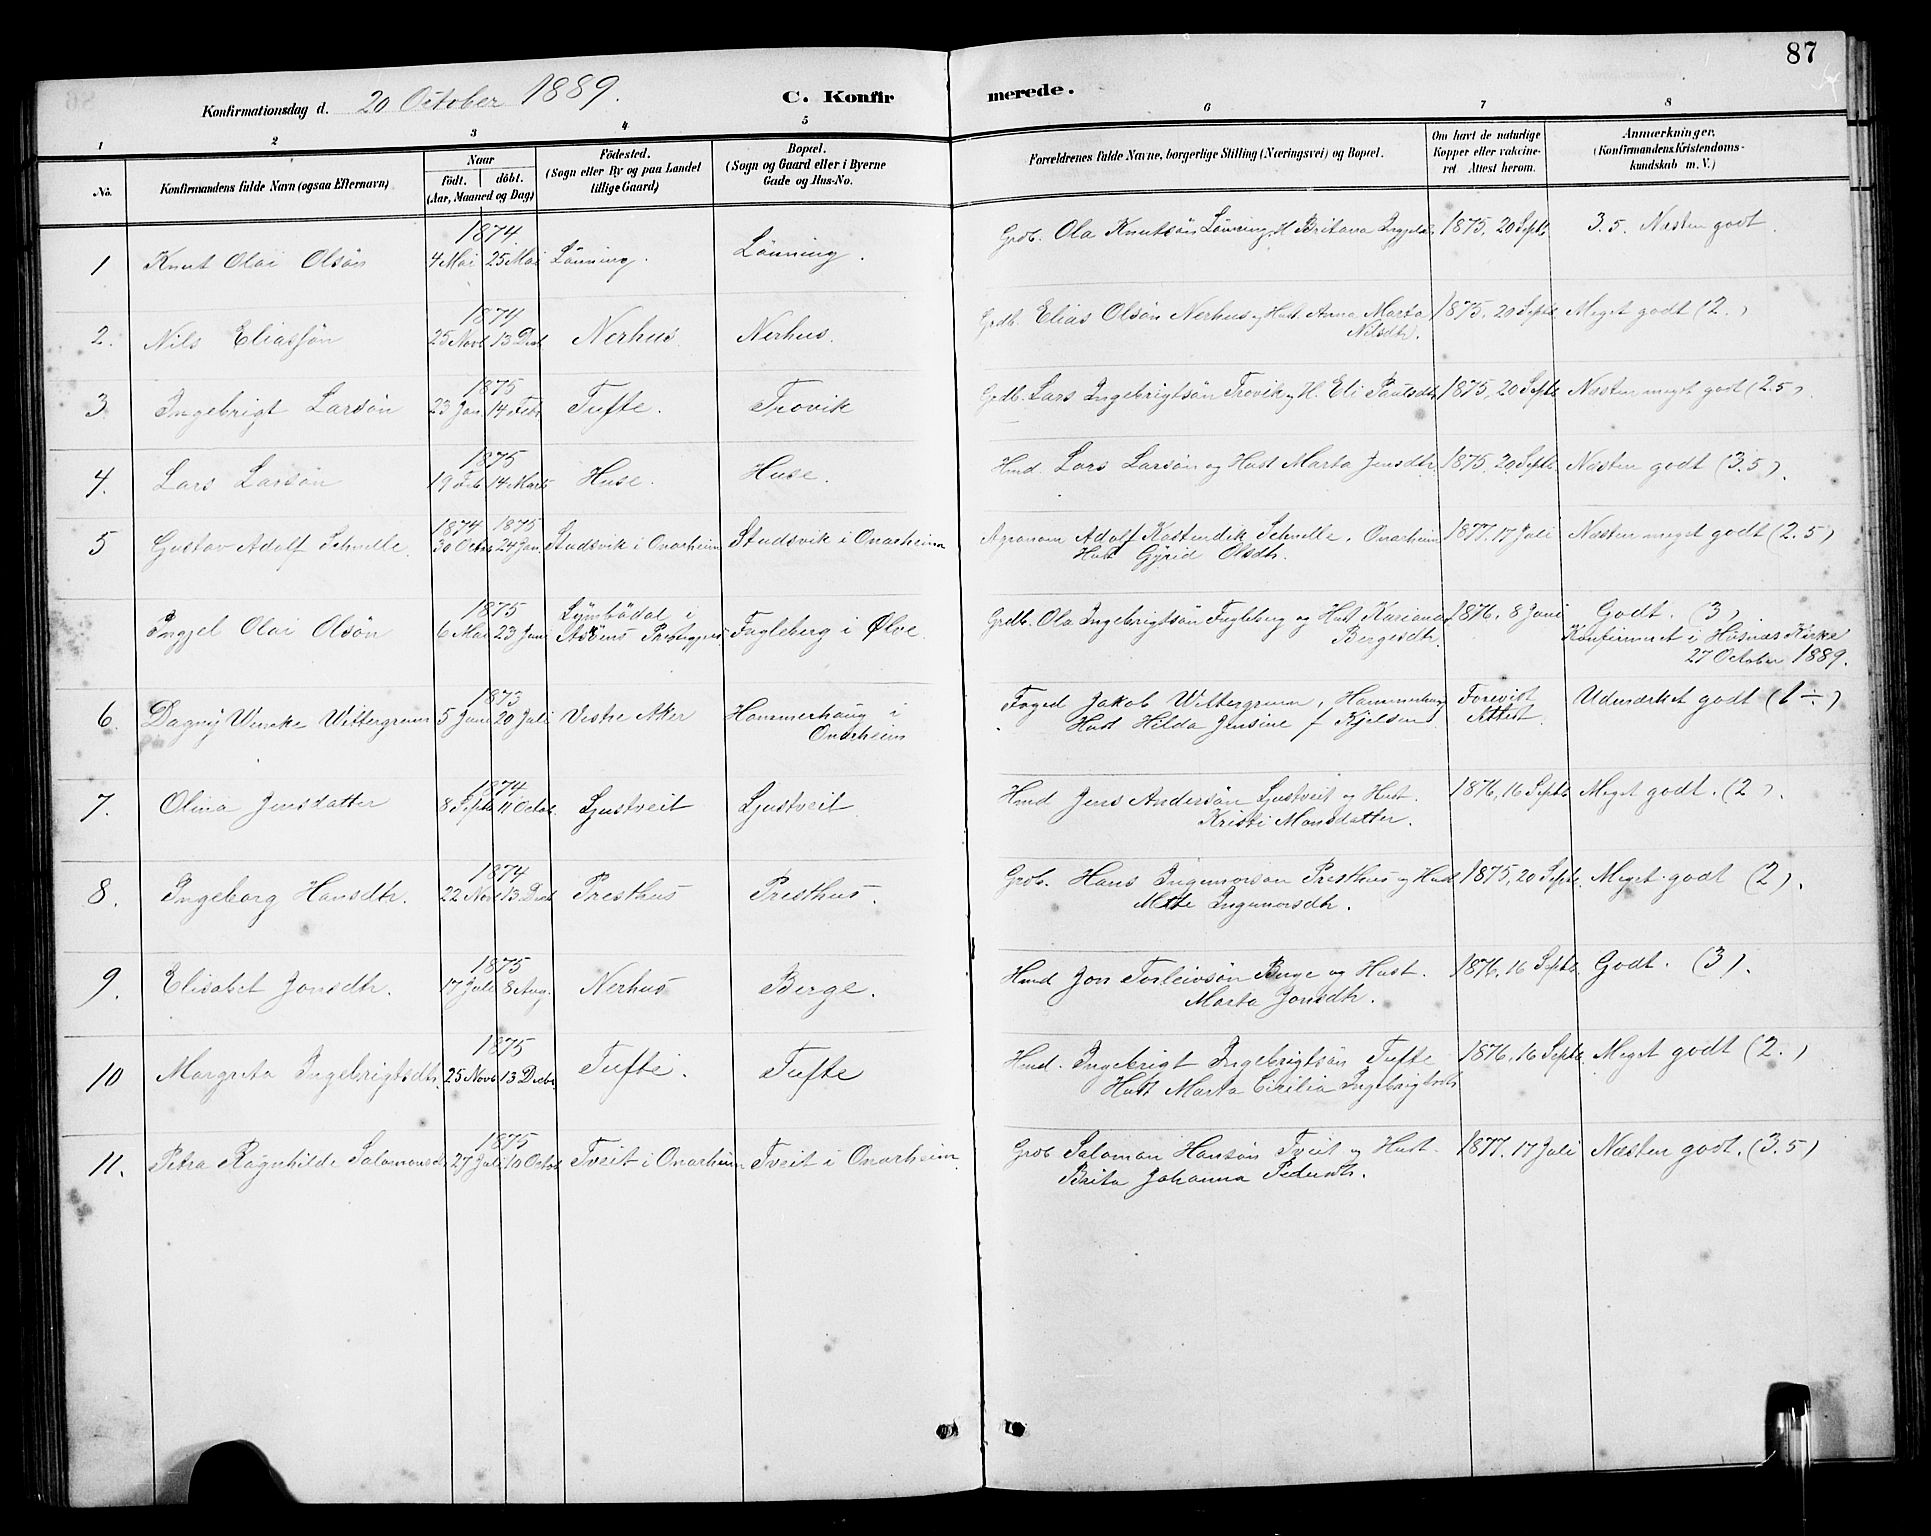 87
Konfirmationsdag d. 20 October 1889. C. Konfirmerede.
1 2 3 4 5 6 7 8
No. Konfirmandens fulde Navn (ogsaa Efternavn) Naar födt. döbt. (Aar, Maaned og Dag) Födested. (Sogn eller By og paa Landet tillige Gaard) Bopæl. (Sogn og Gaard eller i Byerne Gade og Hus-No. Forældrenes fulde Navne, borgerlige Stilling (Næringsvei) og Bopæl. Om havt de naturlige Kopper eller vaccineret. Attest herom. Anmærkninger. (Konfirmandens Kristendomskundskab m. V.)
1874
1 Knut Olai Olsön 4 Mai 25 Mai Lönning. Lönning. Grdb. Ola Knutsön Lönning, H. Britana 1875, 20 Septb. 3.5. Næsten godt.
1874
2. Nils Eliassön 25 Novb 13 Decb Nerhus. Nerhus. Grdb. Elias Olsön Nerhus og Hust Anna Marta 1875, 20 Septb. Meget godt (2.)
Nilsdtr.
1875
3. Ingebrigt Larsön 23 Jan 14 Febr Tufte. Trovik Grdb. Lars Ingebrigtsön Trovik og H. Eli Paulsdtr 1875, 20 Septb Næsten meget godt (2.5)
1875
4. Lars Larsön 19 Feb 14 Marts Huse. Huse. Hmd. Lars Larsön og Hust Marta Jensdtr. 1875, 20 Septb Næsten godt (3.5).
1874 1875
5 Gustav Adolf Schnelle. 30 Octbr 24 Jan Studsvik i Onarheim Studsvik i Onarheim Agronom Adolf Kastendik Schnelle, Onarheim 1877. 17 Juli Næsten meget godt (2.5)
Hust Gyrid Olsdtr.
1875
Ingjel Olai Olsön 6 Mai 23 Juni i Prestegjeld Fugleberg i Ølve. Grdb. Ola Ingebrigtsön Fugleberg og Hust Kariane 1876, 8 Juni Godt. (3)
Bergesdtr. Konfirmeret i Husnæs Kirke
27 October 1889.
1873
6. Dagny Wencke Wittergreen 5 Juni 20 Juli Vestre Aker Hammerhaug i Foged Jakob Wittergreen, Hammerhaug Forevist Udmærket godt (1 ÷)
Onarheim Hust Hilda Jensine f Kjelsen Attest.
1874
7. Olina Jensdatter 8 Septb 11 Octob. Ljustveit Ljustveit. Hmd Jens Andersön Ljustveit og Hust. 1876, 16 Septb Meget godt. (2).
Kristi Monsdatter.
1874
8. Ingeborg Hansdtr. 22 Nov 13 Decb Presthus Presthus. Grdb. Hans Ingemorsön Presthus og Hust 1875, 20 Septb. Meget godt (2).
Mette Ingemorsdtr.
1875
9. Elisabet Jonsdtr. 17 Juli 8 Aug. Nerhus Berge. Hmd Jon Torleivsön Berge og Hust. 1876, 16 Septb. Godt. (3).
Marta Jonsdtr.
1875
10 Margreta Ingebrigtsdtr. 25 Novb 13 Decbr Tufte. Tufte Hmd. Ingebrigt Ingebrigtsön Tufte 1876, 16 Septb Meget godt (2.)
Hust Marta Cecilia Ingebrigtsdtr
1875
11. Petra Ragnhilde Salomonsd. 27 Juli 10 Octob Tveit i Onarheim Tveit i Onarheim. Grdb Salomon Hansön Tveit og Hust. 1877. 17 Juli Næsten godt. (3.5)
Brita Johanna Pedersdtr.